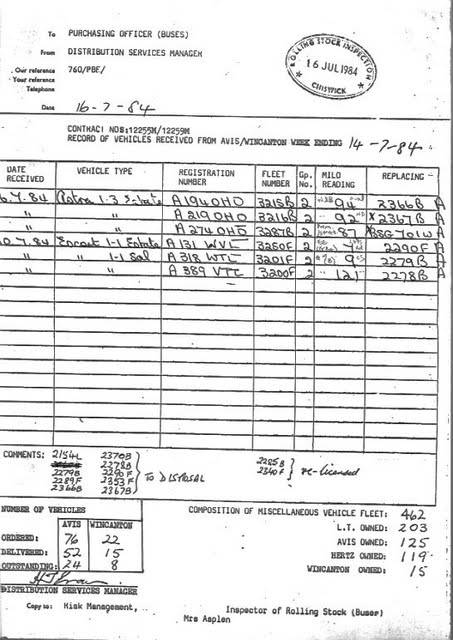 To PURCHASING OFFICER (BUSES)
From DISTRIBUTION SERVICES MANAGER
Our reference 760/PBF/
Your reference
Telephone
Date 16-7-84
ROLLING STOCK INSPECTION
16 JUL 1984
CHISWICK
CONTRACT NOS:12255M/12259M
RECORD OF VEHICLES RECEIVED FROM AVIS/WINCANTON WEEK ENDING 14-7-84
DATE RECEIVED VEHICLE TYPE REGISTRATION NUMBER FLEET NUMBER Gp. No. MILO READING REPLACING
6.7.84 Astra 1.3 Estate A194OHO 3215B 2 94 2366B A
" " A219OHO 3216B 2 " 92 X2367B A
" " A274OHO 3287B 2 87 A
0.7.84 Escort 1-1 Estate A131 WVL 3250F 2 2290F A
" " 1-1 Sal A318 WTL 3201F 2 9 2279B A
" " A389 VTC 3200F 2 " 121 2278B A
COMMENTS: 2154L 2370B
2278B 2285B
2279B 2290F TO DISPOSAL 2340F re-licensed
2289F 2353F
2366B 2367B
NUMBER OF VEHICLES
AVIS WINCANTON
ORDERED: 76 22
DELIVERED: 52 15
OUTSTANDING: 24 8
COMPOSITION OF MISCELLANEOUS VEHICLE FLEET: 462
L.T. OWNED: 203
AVIS OWNED: 125
HERTZ OWNED: 119
WINCANTON OWNED: 15
DISTRIBUTION SERVICES MANAGER
Copy to: Risk Management, Inspector of Rolling Stock (Buses)
Mrs Asplen